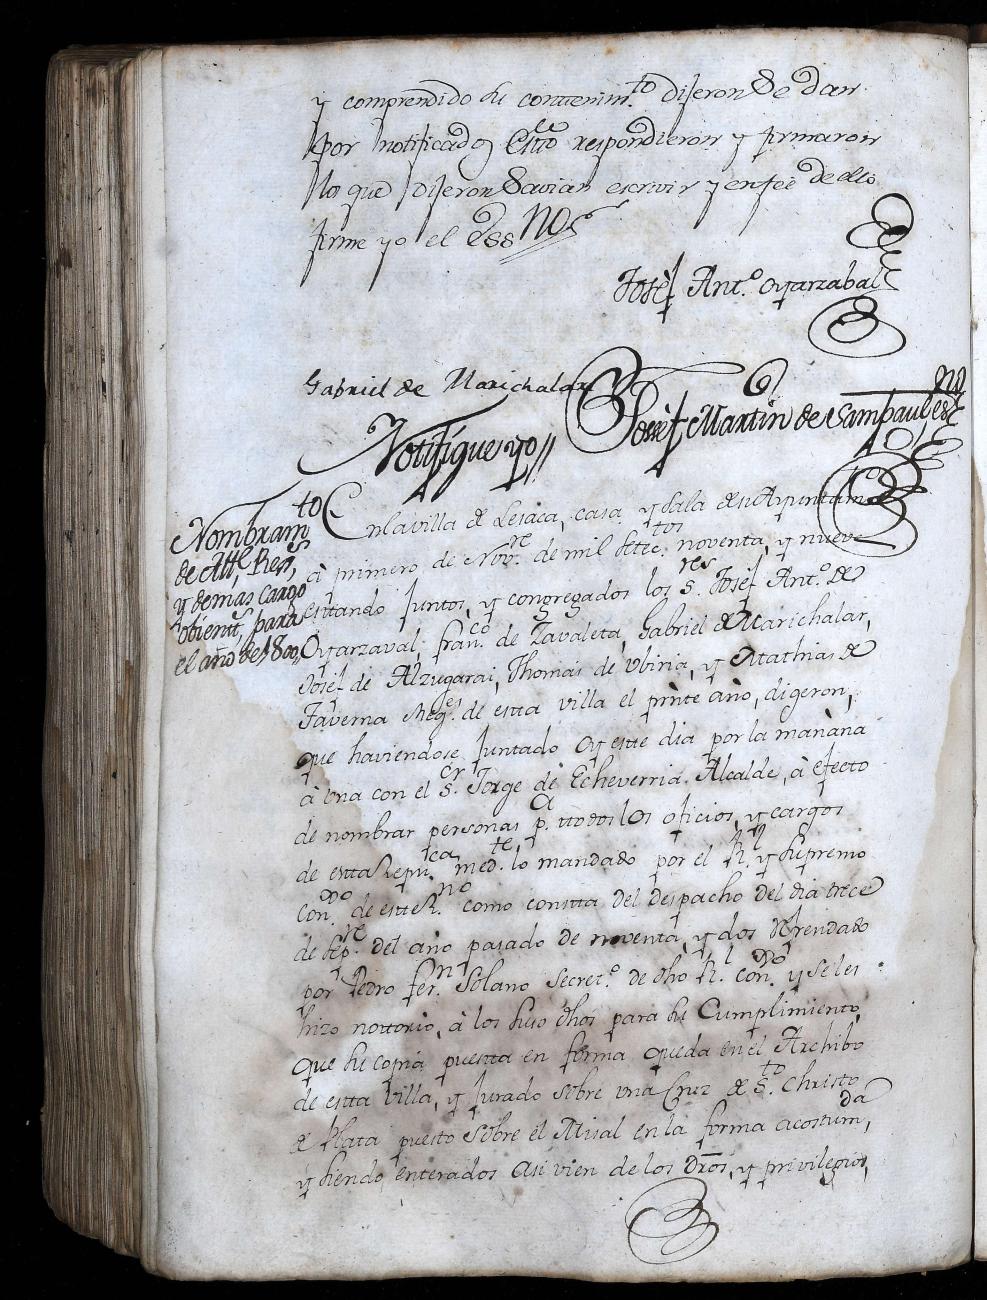 y comprendido su conttenim.to dijeron se dan
por nottificados Estto respondieron y firmaron
los que dijeron Savian escrivir y enfeé de ello
firme yo el Ess.no
Josef Ant.o Oyarzabal
Gabriel de Marichalar
Notifíque yo
Josef Martin de Sampaul, ess.no
Nombram.to
de Att.e Reg.s
y demas Cargo
para
el año de 1800
Enla villa de Lesaca, casa y Sala de su Ayuntam.to
à primero de Nov.re de mil sete.tos noventa, y nueve
estando Juntos, y congregados los S.res Josef Ant.o de
Oyarzaval, fran.co de Zavaleta, Gabriel de Marichalar,
Josef de Alzugarai, Thomas de Vbiria, y Mathias de
Taverna Reg.es de estta villa el prnte año, digeron,
que haviendose Juntado oy este dia por la mañana
à vna con el S.or Jorge de Echeverria Alcalde, à efecto
de nombrar personas p.a ttodos los oficios, y cargos
de estta Repu.ca med.te lo mandado por el R.l y Supremo
Con.o de este R.no como constta del despacho del dia trece
de Sep.re del año pasado de noventa, y dos Refrendado
por Pedro fer.nz Solano Secret.o de dho R.l Con.o y se les
hizo nottorio, à los suso dhos para su Cumplimiento,
que su copia puestta en forma queda en el Archibo
de estta villa, y Jurado sobre vna Cruz de S.to Christo
de Platta puesto sobre el Misal en la forma acostum.da,
y siendo entterados asi vien de los dros, y privilegios,